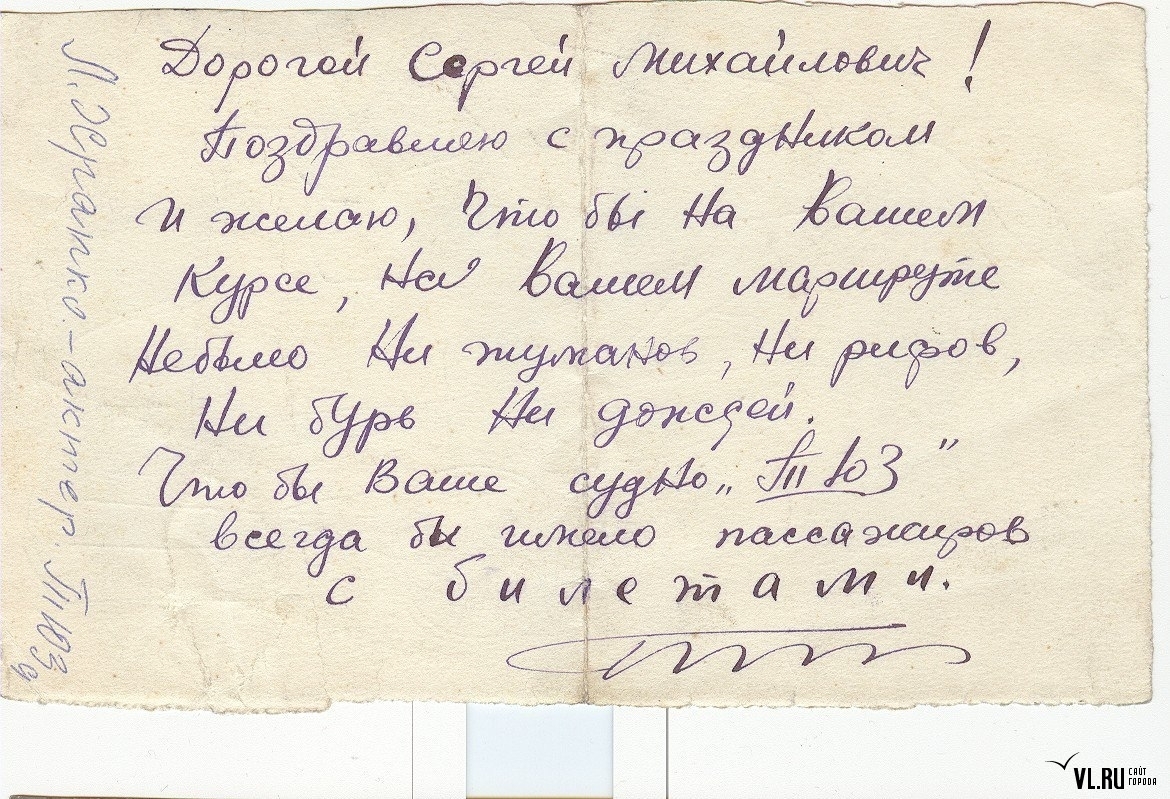 Дорогой Сергей Михайлович!
Поздравляю с праздником
и желаю, что бы на вашем
курсе, на вашем маршруте
небыло ни туманов, ни рифов,
ни бурь ни дождей.
Что бы Ваше судно „ТЮЗ"
всегда бы имело пассажиров
с билетами.
актер ТЮЗа
VL.RU САЙТ ГОРОДА